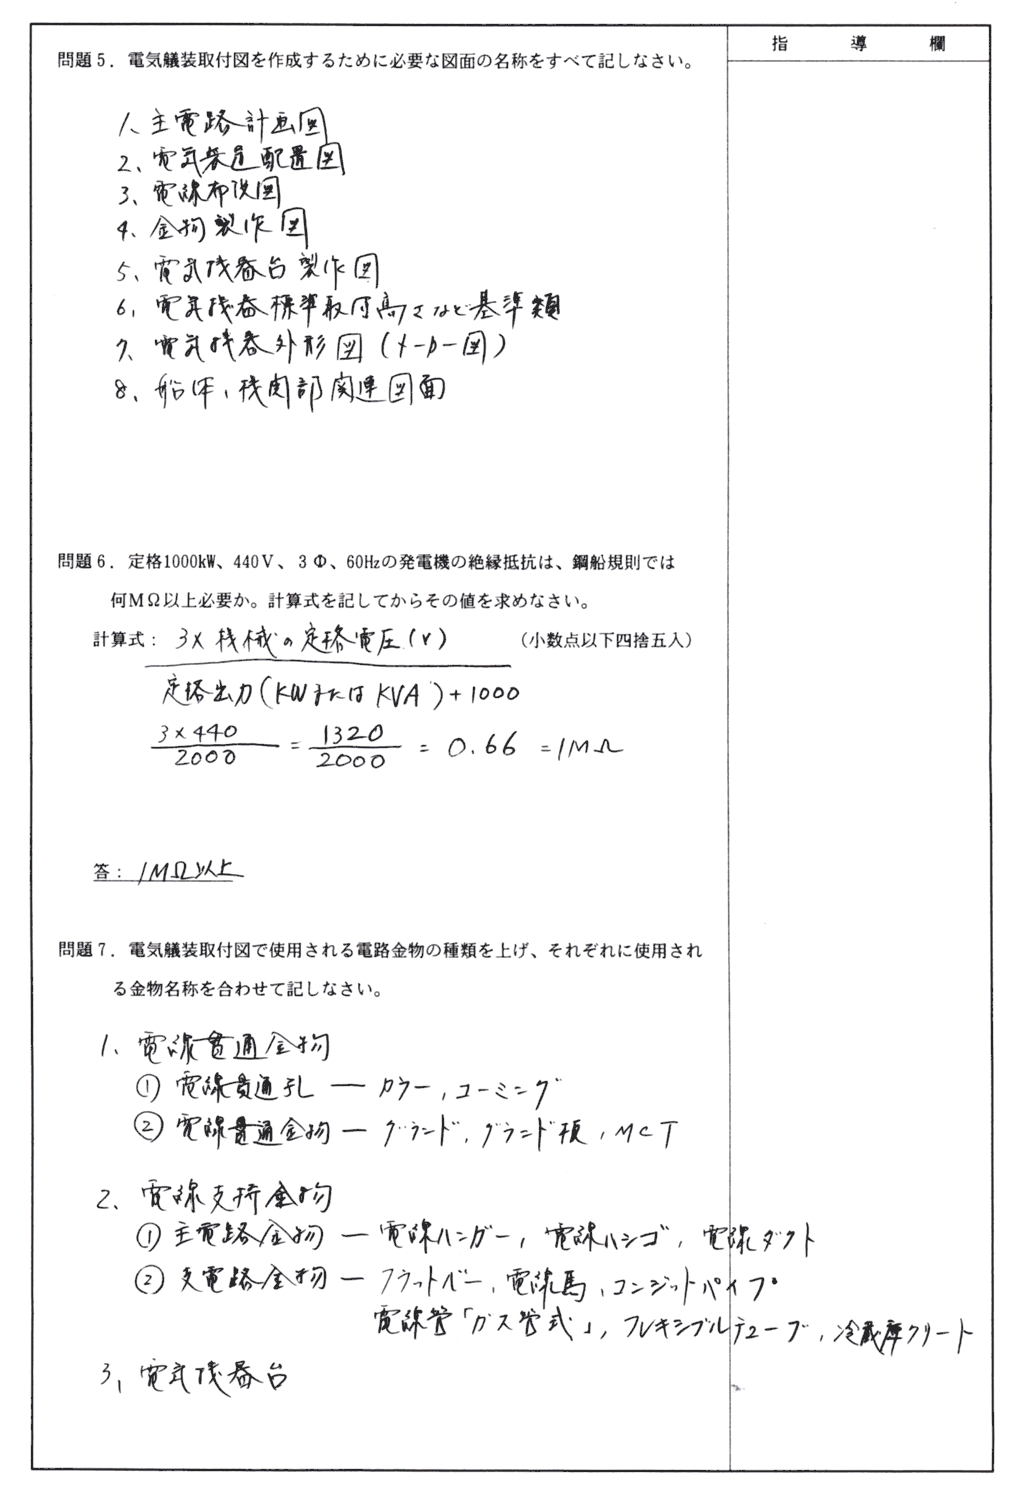 指導欄
問題5．電気艤装取付図を作成するために必要な図面の名称をすべて記しなさい。
1、主電路計画図
2、電気装置配置図
3、電線布設図
4、金物製作図
5、電気機器台製作図
6、電気機器標準取付高さなど基準類
7、電気機器外形図(メーカー図)
8、船体、機関部関連図面
問題6．定格1000kW、440V、3Φ、60Hzの発電機の絶縁抵抗は、鋼船規則では
何MΩ以上必要か。計算式を記してからその値を求めなさい。
計算式：3×機械の定格電圧(V) （小数点以下四捨五入）
定格出力(KWまたはKVA)+1000
3×440/2000 = 1320/2000 = 0.66 =1MΩ
答：1MΩ以上
問題7．電気艤装取付図で使用される電路金物の種類を上げ、それぞれに使用され
る金物名称を合わせて記しなさい。
1、電線貫通金物
① 電線貫通孔 ― カラー，コーミング
② 電線貫通金物 ― グランド，グランド板，MCT
2、電線支持金物
① 主電路金物 ― 電線ハンガー，電線ハシゴ，電線ダクト
② 支電路金物 ― フラットバー，電線馬，コンジットパイプ
電線管「ガス管式」，フレキシブルチューブ，冷蔵庫クリート
3、電気機器台